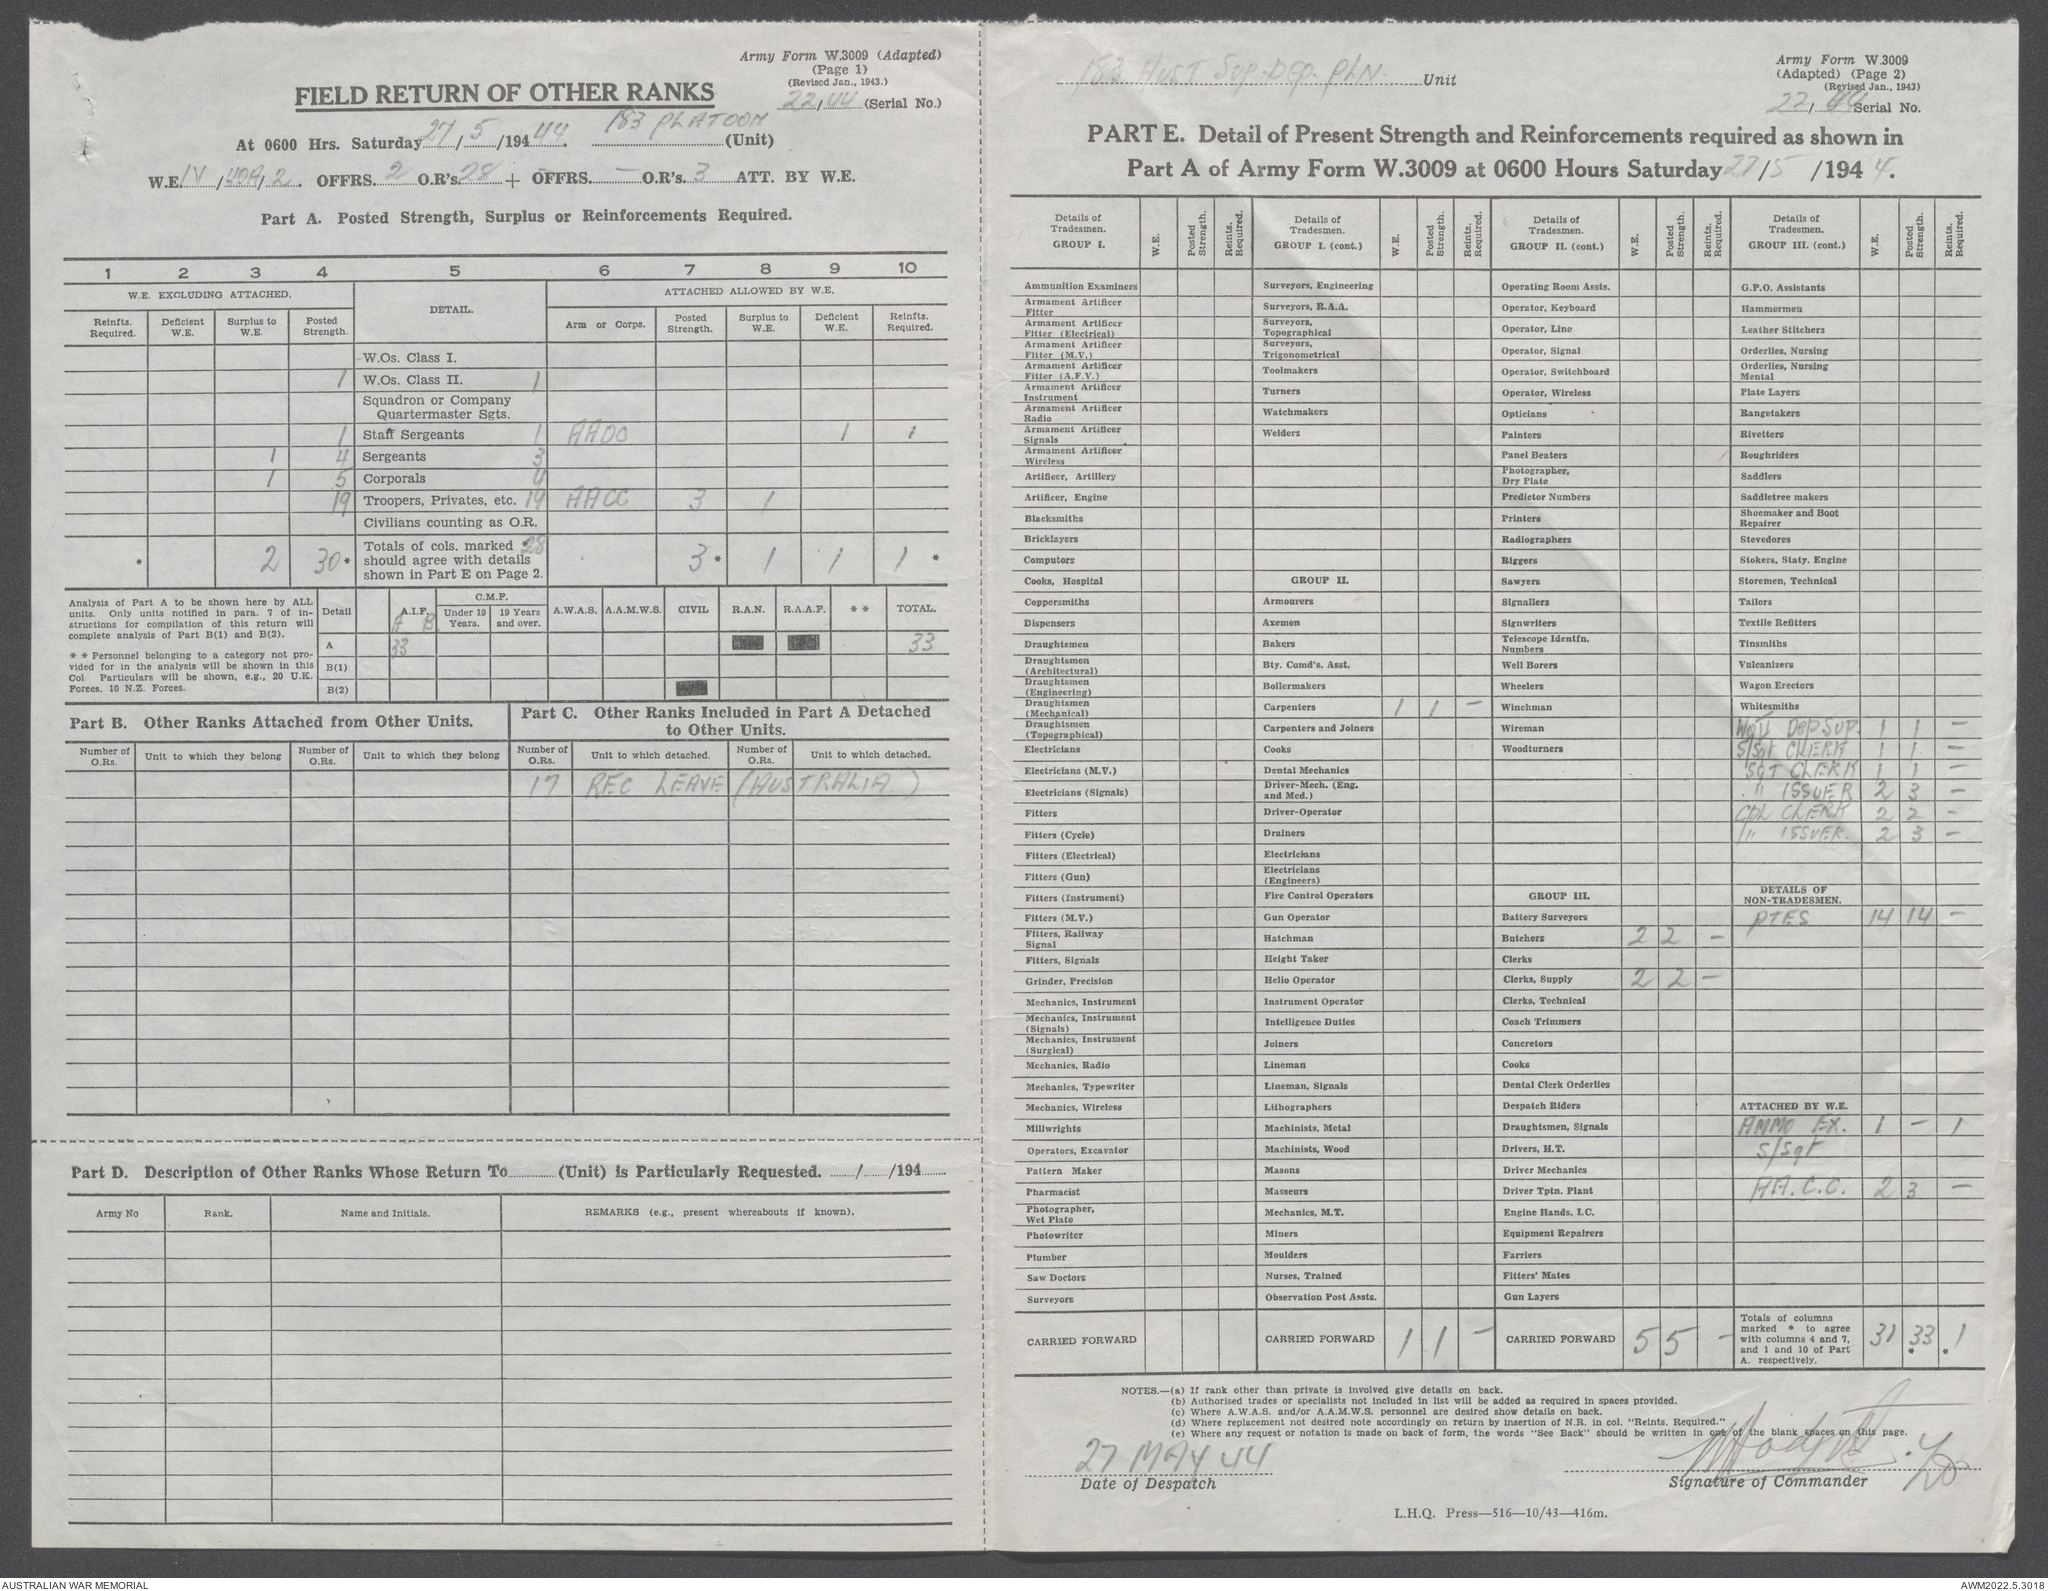 Army Form W.3009 (Adapted)
(Page 1)
(Revised Jan., 1943.)
22, 44 (Serial No.)
FIELD RETURN OF OTHER RANKS
At 0600 Hrs. Saturday 27/5/194 44. 183 PLATOON (Unit)
W.E. IV/409/2. OFFRS. 2 O.R's. 28 + OFFRS. — O.R's. 3 ATT. BY W.E.
Part A. Posted Strength, Surplus or Reinforcements Required.
1 2 3 4 5 6 7 8 9 10
W.E. EXCLUDING ATTACHED. DETAIL. ATTACHED ALLOWED BY W.E.
Reinfts. Required. Deficient W.E. Surplus to W.E. Posted Strength. Arm or Corps. Posted Strength. Surplus to W.E. Deficient W.E. Reinfts. Required.
W.Os. Class I.
1 W.Os. Class II. 1
Squadron or Company
Quartermaster Sgts.
1 Staff Sergeants 1 AAOC 1 1
1 4 Sergeants 3
1 5 Corporals 4
19 Troopers, Privates, etc. 19 AACC 3 1
Civilians counting as O.R.
* 2 30* Totals of cols. marked * should agree with details shown in Part E on Page 2. 28 3* 1 1 1 *
Analysis of Part A to be shown here by ALL
units. Only units notified in para. 7 of in-
structions for compilation of this return will
complete analysis of Part B(1) and B(2).
* * Personnel belonging to a category not pro-
vided for in the analysis will be shown in this
Col Particulars will be shown, e.g., 20 U.K.
Forces. 10 N.Z. Forces.
Detail A.I.F. C.M.F. Under 19 Years. 19 Years and over. A.W.A.S. A.A.M.W.S. CIVIL R.A.N. R.A.A.F. * * TOTAL.
A B
A 33 33
B(1)
B(2)
Part B. Other Ranks Attached from Other Units.
Part C. Other Ranks Included in Part A Detached
to Other Units.
Number of O.Rs. Unit to which they belong Number of O.Rs. Unit to which they belong Number of O.Rs. Unit to which detached. Number of O.Rs. Unit to which detached.
17 REC LEAVE (AUSTRALIA.)
Part D. Description of Other Ranks Whose Return To (Unit) is Particularly Requested. / /194
Army No Rank. Name and Initials. REMARKS (e.g., present whereabouts if known).
183 AUST SUP. DEP. PLN. Unit
Army Form W.3009
(Adapted) (Page 2)
(Revised Jan., 1943)
22, 44 Serial No.
PART E. Detail of Present Strength and Reinforcements required as shown in
Part A of Army Form W.3009 at 0600 Hours Saturday 27/5/1944.
Details of Tradesmen. GROUP I. W.E. Posted Strength. Reints. Required.
Ammunition Examiners
Armament Artificer Fitter
Armament Artificer Fitter (Electrical)
Armament Artificer Fitter (M.V.)
Armament Artificer Fitter (A.F.V.)
Armament Artificer Instrument
Armament Artificer Radio
Armament Artificer Signals
Armament Artificer Wireless
Artificer, Artillery
Artificer, Engine
Blacksmiths
Bricklayers
Computors
Cooks, Hospital
Coppersmiths
Dispensers
Draughtsmen
Draughtsmen (Architectural)
Draughtsmen (Engineering)
Draughtsmen (Mechanical)
Draughtsmen (Topographical)
Electricians
Electricians (M.V.)
Electricians (Signals)
Fitters
Fitters (Cycle)
Fitters (Electrical)
Fitters (Gun)
Fitters (Instrument)
Fitters (M.V.)
Fitters, Railway Signal
Fitters, Signals
Grinder, Precision
Mechanics, Instrument
Mechanics, Instrument (Signals)
Mechanics, Instrument (Surgical)
Mechanics, Radio
Mechanics, Typewriter
Mechanics, Wireless
Millwrights
Operators, Excavator
Pattern Maker
Pharmacist
Photographer, Wet Plate
Photowriter
Plumber
Saw Doctors
Surveyors
CARRIED FORWARD
Details of Tradesmen. GROUP I. (cont.) W.E. Posted Strength. Reints. Required.
Surveyors, Engineering
Surveyors, R.A.A.
Surveyors, Topographical
Surveyors, Trigonometrical
Toolmakers
Turners
Watchmakers
Welders
GROUP II.
Armourers
Axemen
Bakers
Bty. Comd's. Asst.
Boilermakers
Carpenters 1 1 —
Carpenters and Joiners
Cooks
Dental Mechanics
Driver-Mech. (Eng. and Med.)
Driver-Operator
Drainers
Electricians
Electricians (Engineers)
Fire Control Operators
Gun Operator
Hatchman
Height Taker
Helio Operator
Instrument Operator
Intelligence Duties
Joiners
Lineman
Lineman, Signals
Lithographers
Machinists, Metal
Machinists, Wood
Masons
Masseurs
Mechanics, M.T.
Miners
Moulders
Nurses, Trained
Observation Post Assts.
CARRIED FORWARD 1 1 —
Details of Tradesmen. GROUP II. (cont.) W.E. Posted Strength. Reints. Required.
Operating Room Assts.
Operator, Keyboard
Operator, Line
Operator, Signal
Operator, Switchboard
Operator, Wireless
Opticians
Painters
Panel Beaters
Photographer, Dry Plate
Predictor Numbers
Printers
Radiographers
Riggers
Sawyers
Signallers
Signwriters
Telescope Identfn. Numbers
Well Borers
Wheelers
Winchman
Wireman
Woodturners
GROUP III.
Battery Surveyors
Butchers 2 2 —
Clerks
Clerks, Supply 2 2 —
Clerks, Technical
Coach Trimmers
Concretors
Cooks
Dental Clerk Orderlies
Despatch Riders
Draughtsmen, Signals
Drivers, H.T.
Driver Mechanics
Driver Tptn. Plant
Engine Hands, I.C.
Equipment Repairers
Farriers
Fitters' Mates
Gun Layers
CARRIED FORWARD 5 5 —
Details of Tradesmen. GROUP III. (cont.) W.E. Posted Strength. Reints. Required.
G.P.O. Assistants
Hammermen
Leather Stitchers
Orderlies, Nursing
Orderlies, Nursing Mental
Plate Layers
Rangetakers
Rivetters
Roughriders
Saddlers
Saddletree makers
Shoemaker and Boot Repairer
Stevedores
Stokers, Staty. Engine
Storemen, Technical
Tailors
Textile Refitters
Tinsmiths
Vulcanizers
Wagon Erectors
Whitesmiths
WOII Dep Sup. 1 1 —
S/Sgt CLERK 1 1 —
SGT CLERK 1 1 —
" ISSUER 2 3 —
Cpl CLERK 2 2 —
" ISSUER. 2 3 —
DETAILS OF NON-TRADESMEN.
PTES 14 14 —
ATTACHED BY W.E.
AMMO EX. 1 — 1
S/Sgt
AA.C.C. 2 3 —
Totals of columns marked * to agree with columns 4 and 7, and 1 and 10 of Part A. respectively. 31 33 * 1 *
NOTES.—(a) If rank other than private is involved give details on back.
(b) Authorised trades or specialists not included in list will be added as required in spaces provided.
(c) Where A.W.A.S. and/or A.A.M.W.S. personnel are desired show details on back.
(d) Where replacement not desired note accordingly on return by insertion of N.R. in col. "Reints. Required."
(e) Where any request or notation is made on back of form, the words "See Back" should be written in one of the blank spaces on this page.
27 MAY 44
Date of Despatch
Signature of Commander
L.H.Q. Press—516—10/43—416m.
AUSTRALIAN WAR MEMORIAL
AWM2022.5.3018